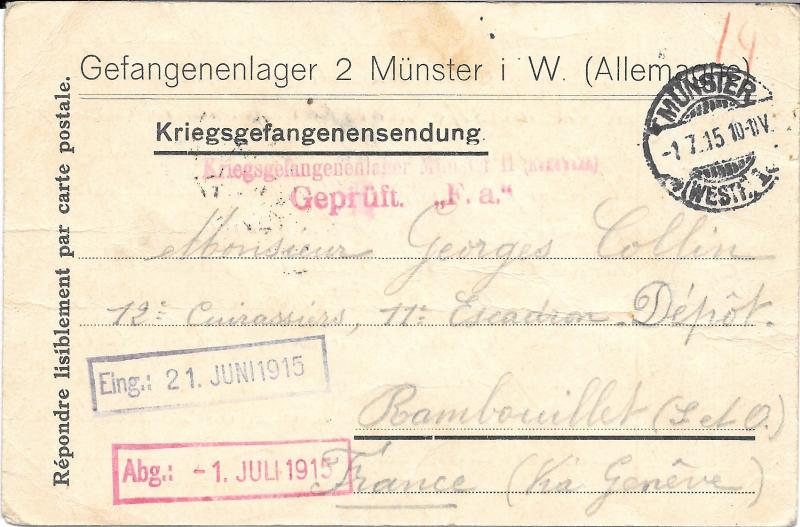 19
Gefangenenlager 2 Münster i W. (Allemagne)
MÜNSTER
-1.7.15 10-11V.
(WESTF.)
Kriegsgefangenensendung.
Kriegsgefangenenlager Münster II (Rennbahn)
Geprüft. „F. a."
Monsieur Georges Collin
12e Cuirassiers, 11e Escadron. Dépôt.
Eing.: 21. JUNI 1915
Rambouillet (S et O.)
Abg.: -1. JULI 1915
France (Via Genève)
Répondre lisiblement par carte postale.